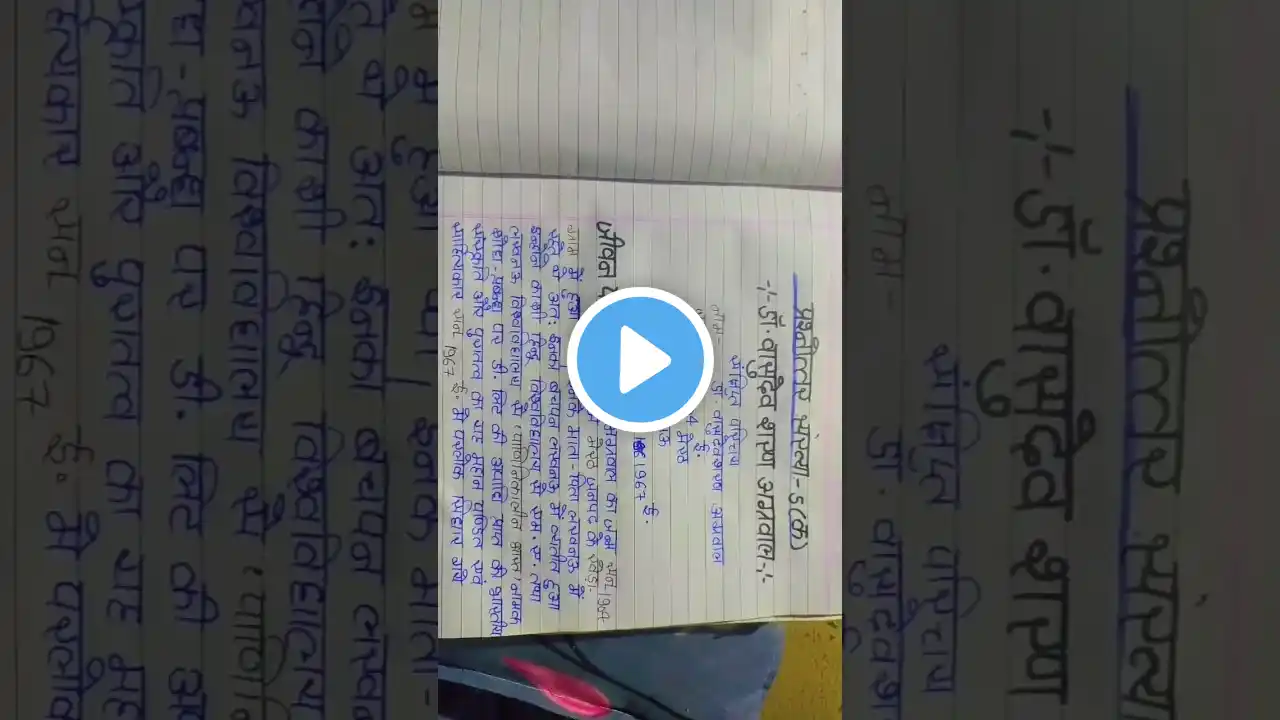 प्रश्नोत्तर संख्या-5(क)
-:- डॉ. वासुदेव शरण अग्रवाल -:-
संक्षिप्त परिचय
नाम- डा. वासुदेवशरण अग्रवाल
4 ई.
मेरठ
1967 ई.
जीवन
अग्रवाल का जन्म सन् 1904
में मेरठ जनपद के खेड़ा
ग्राम में हुआ था। इनके माता-पिता लखनऊ में
रहते थे अतः इनका बचपन लखनऊ में व्यतीत हुआ
इन्होंने काशी हिन्दू विश्वविद्यालय से एम. ए. तथा
लखनऊ विश्वविद्यालय से 'पाणिनिकालीन भारत' नामक
शोध-प्रबन्ध पर डी. लिट की उपाधि प्राप्त की भारतीय
संस्कृति और पुरातत्व का यह महान पण्डित एवं
साहित्यकार सन् 1967 ई. में परलोक सिधार गये